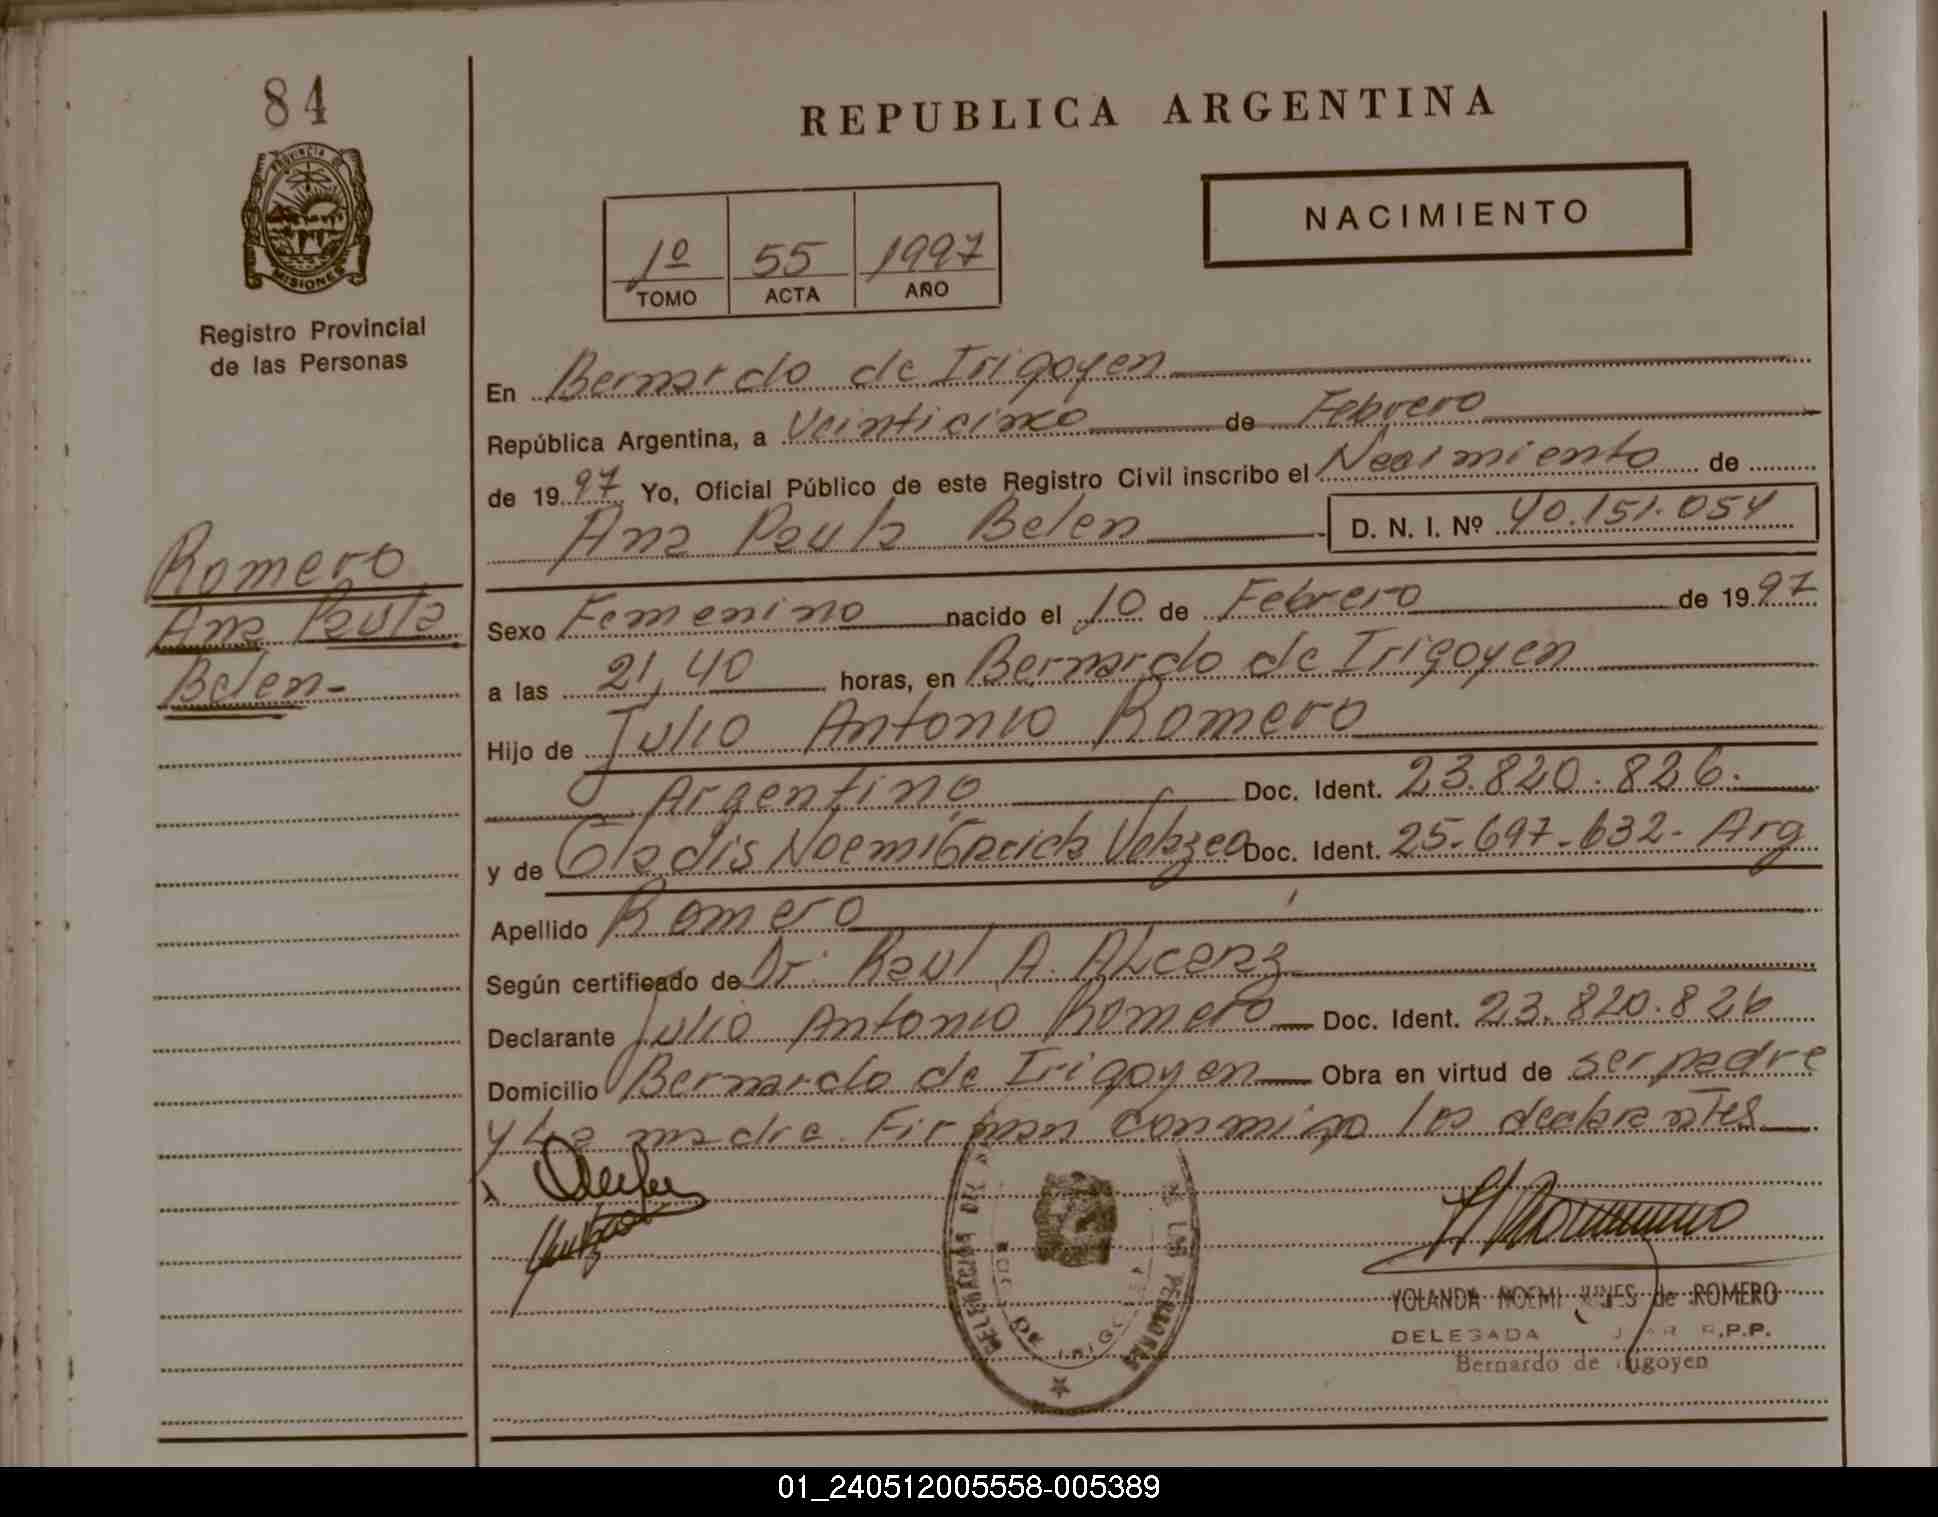 84
PROVINCIA DE
MISIONES
Registro Provincial
de las Personas
Romero
Ana Paula
Belen-
REPUBLICA ARGENTINA
NACIMIENTO
1º 55 1997
TOMO ACTA AÑO
En Bernardo de Irigoyen
República Argentina, a Veinticinco de Febrero
de 1997 Yo, Oficial Público de este Registro Civil inscribo el Nacimiento de
Ana Paula Belen D. N. I. Nº 40.151.054
Sexo Femenino nacido el 10 de Febrero de 1997
a las 21,40 horas, en Bernardo de Irigoyen
Hijo de Julio Antonio Romero
Argentino Doc. Ident. 23.820.826.
y de Gladis Noemi Doc. Ident. 25-697-632- Arg
Apellido Romero
Según certificado de Dr. Raul A.
Declarante Julio Antonio Romero Doc. Ident. 23.820.826
Domicilio Bernardo de Irigoyen Obra en virtud de ser padre
y la madre. Firman conmigo los declarantes
DELEGACION DEL
PERSONAS
YOLANDA NOEMI de ROMERO
DELEGADA R.P.P.
Bernardo de Irigoyen
01_240512005558-005389